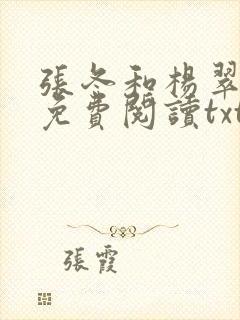 張冬和楊翠
免費閱讀txt
張霞